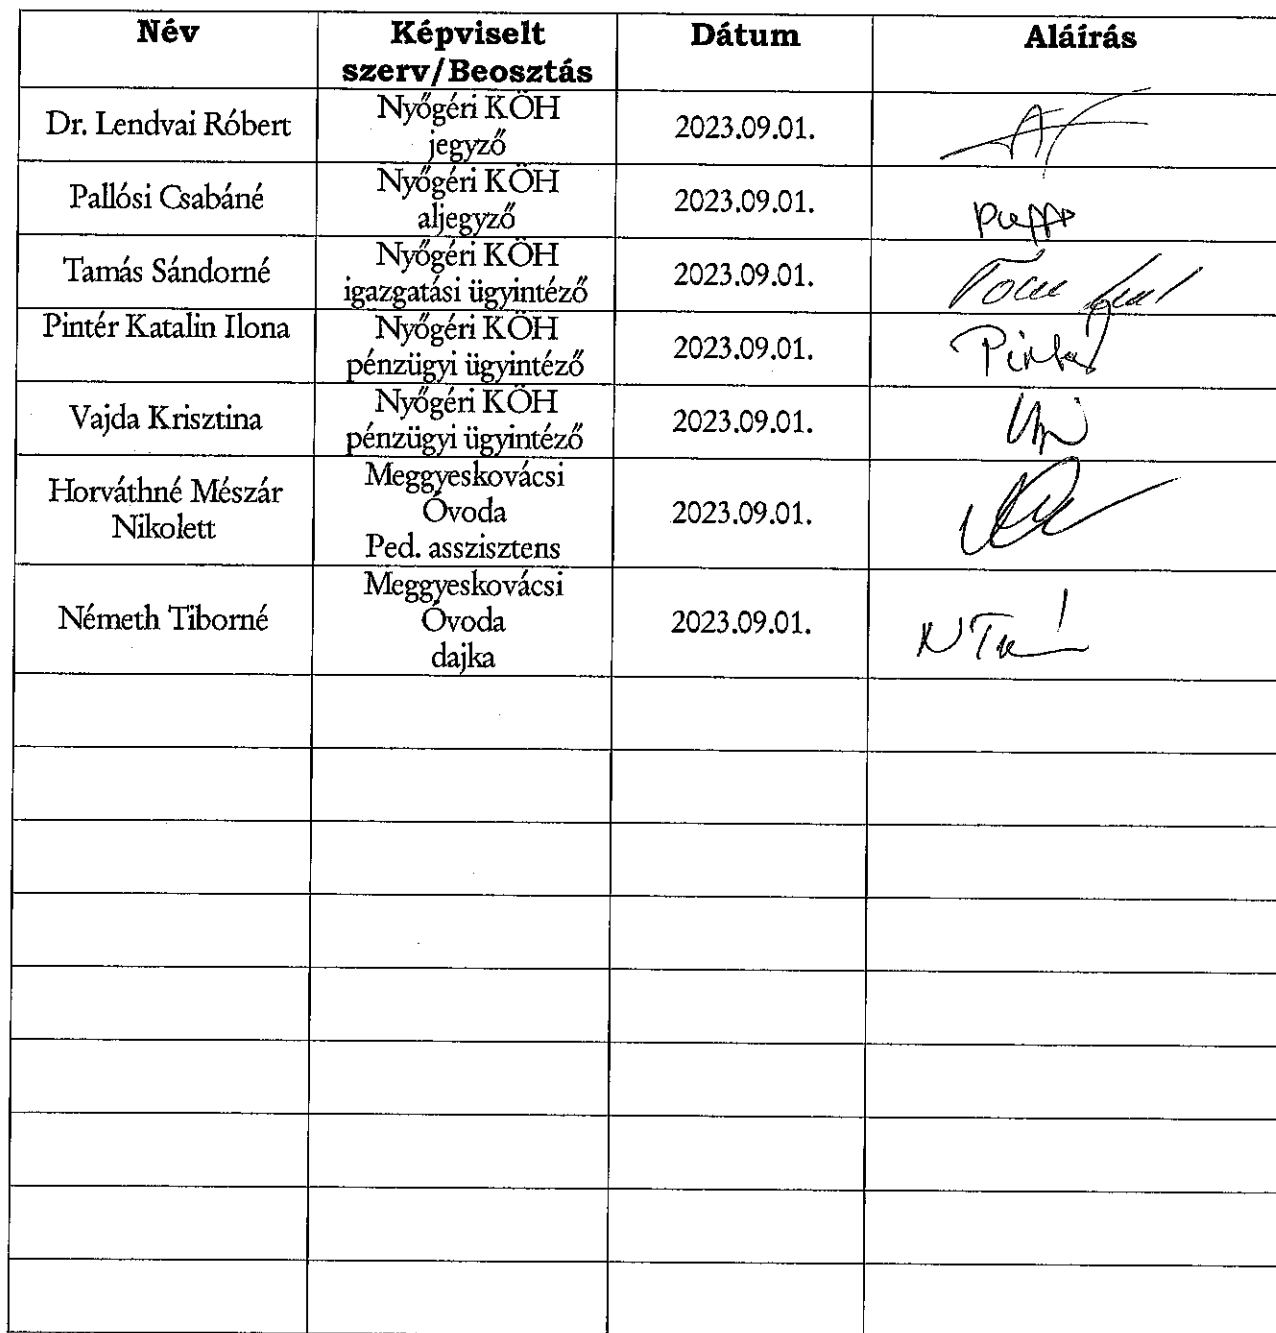 Név
Képviselt
szerv/Beosztás
Dátum
Aláírás
Dr. Lendvai Róbert
Nyőgéri KÖH
jegyző
2023.09.01.
Pallósi Csabáné
Nyőgéri KÖH
aljegyző
2023.09.01.
Tamás Sándorné
Nyőgéri KÖH
igazgatási ügyintéző
2023.09.01.
Pintér Katalin Ilona
Nyőgéri KÖH
pénzügyi ügyintéző
2023.09.01.
Vajda Krisztina
Nyőgéri KÖH
pénzügyi ügyintéző
2023.09.01.
Horváthné Mészár
Nikolett
Meggyeskovácsi
Óvoda
Ped. asszisztens
2023.09.01.
Németh Tiborné
Meggyeskovácsi
Óvoda
dajka
2023.09.01.